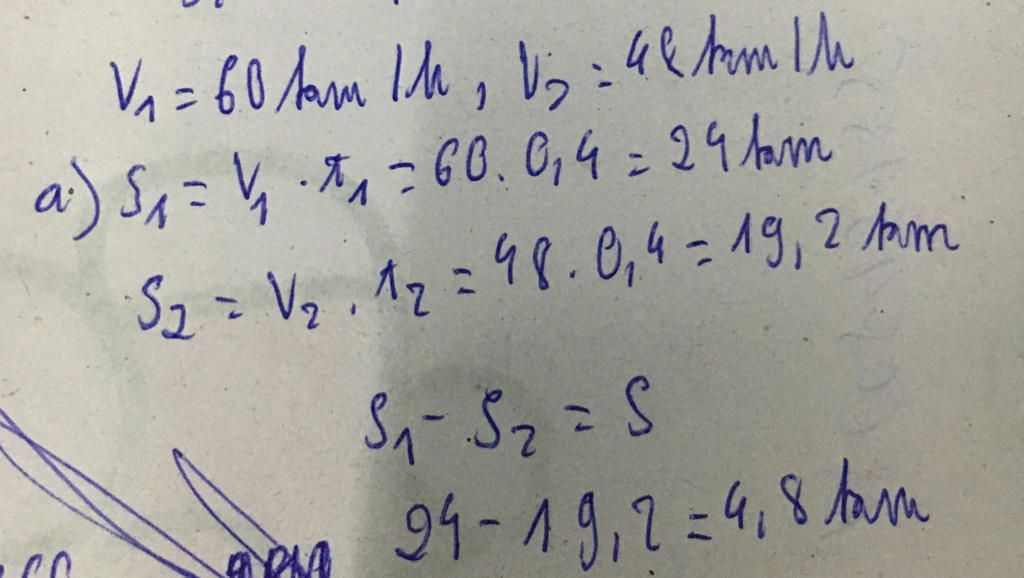 V₁ = 60 km/h, V₂ = 48 km/h
a) S₁ = V₁ . t₁ = 60. 0,4 = 24 km
S₂ = V₂ . t₂ = 48. 0,4 = 19,2 km
S₁ - S₂ = S
24 - 19,2 = 4,8 km